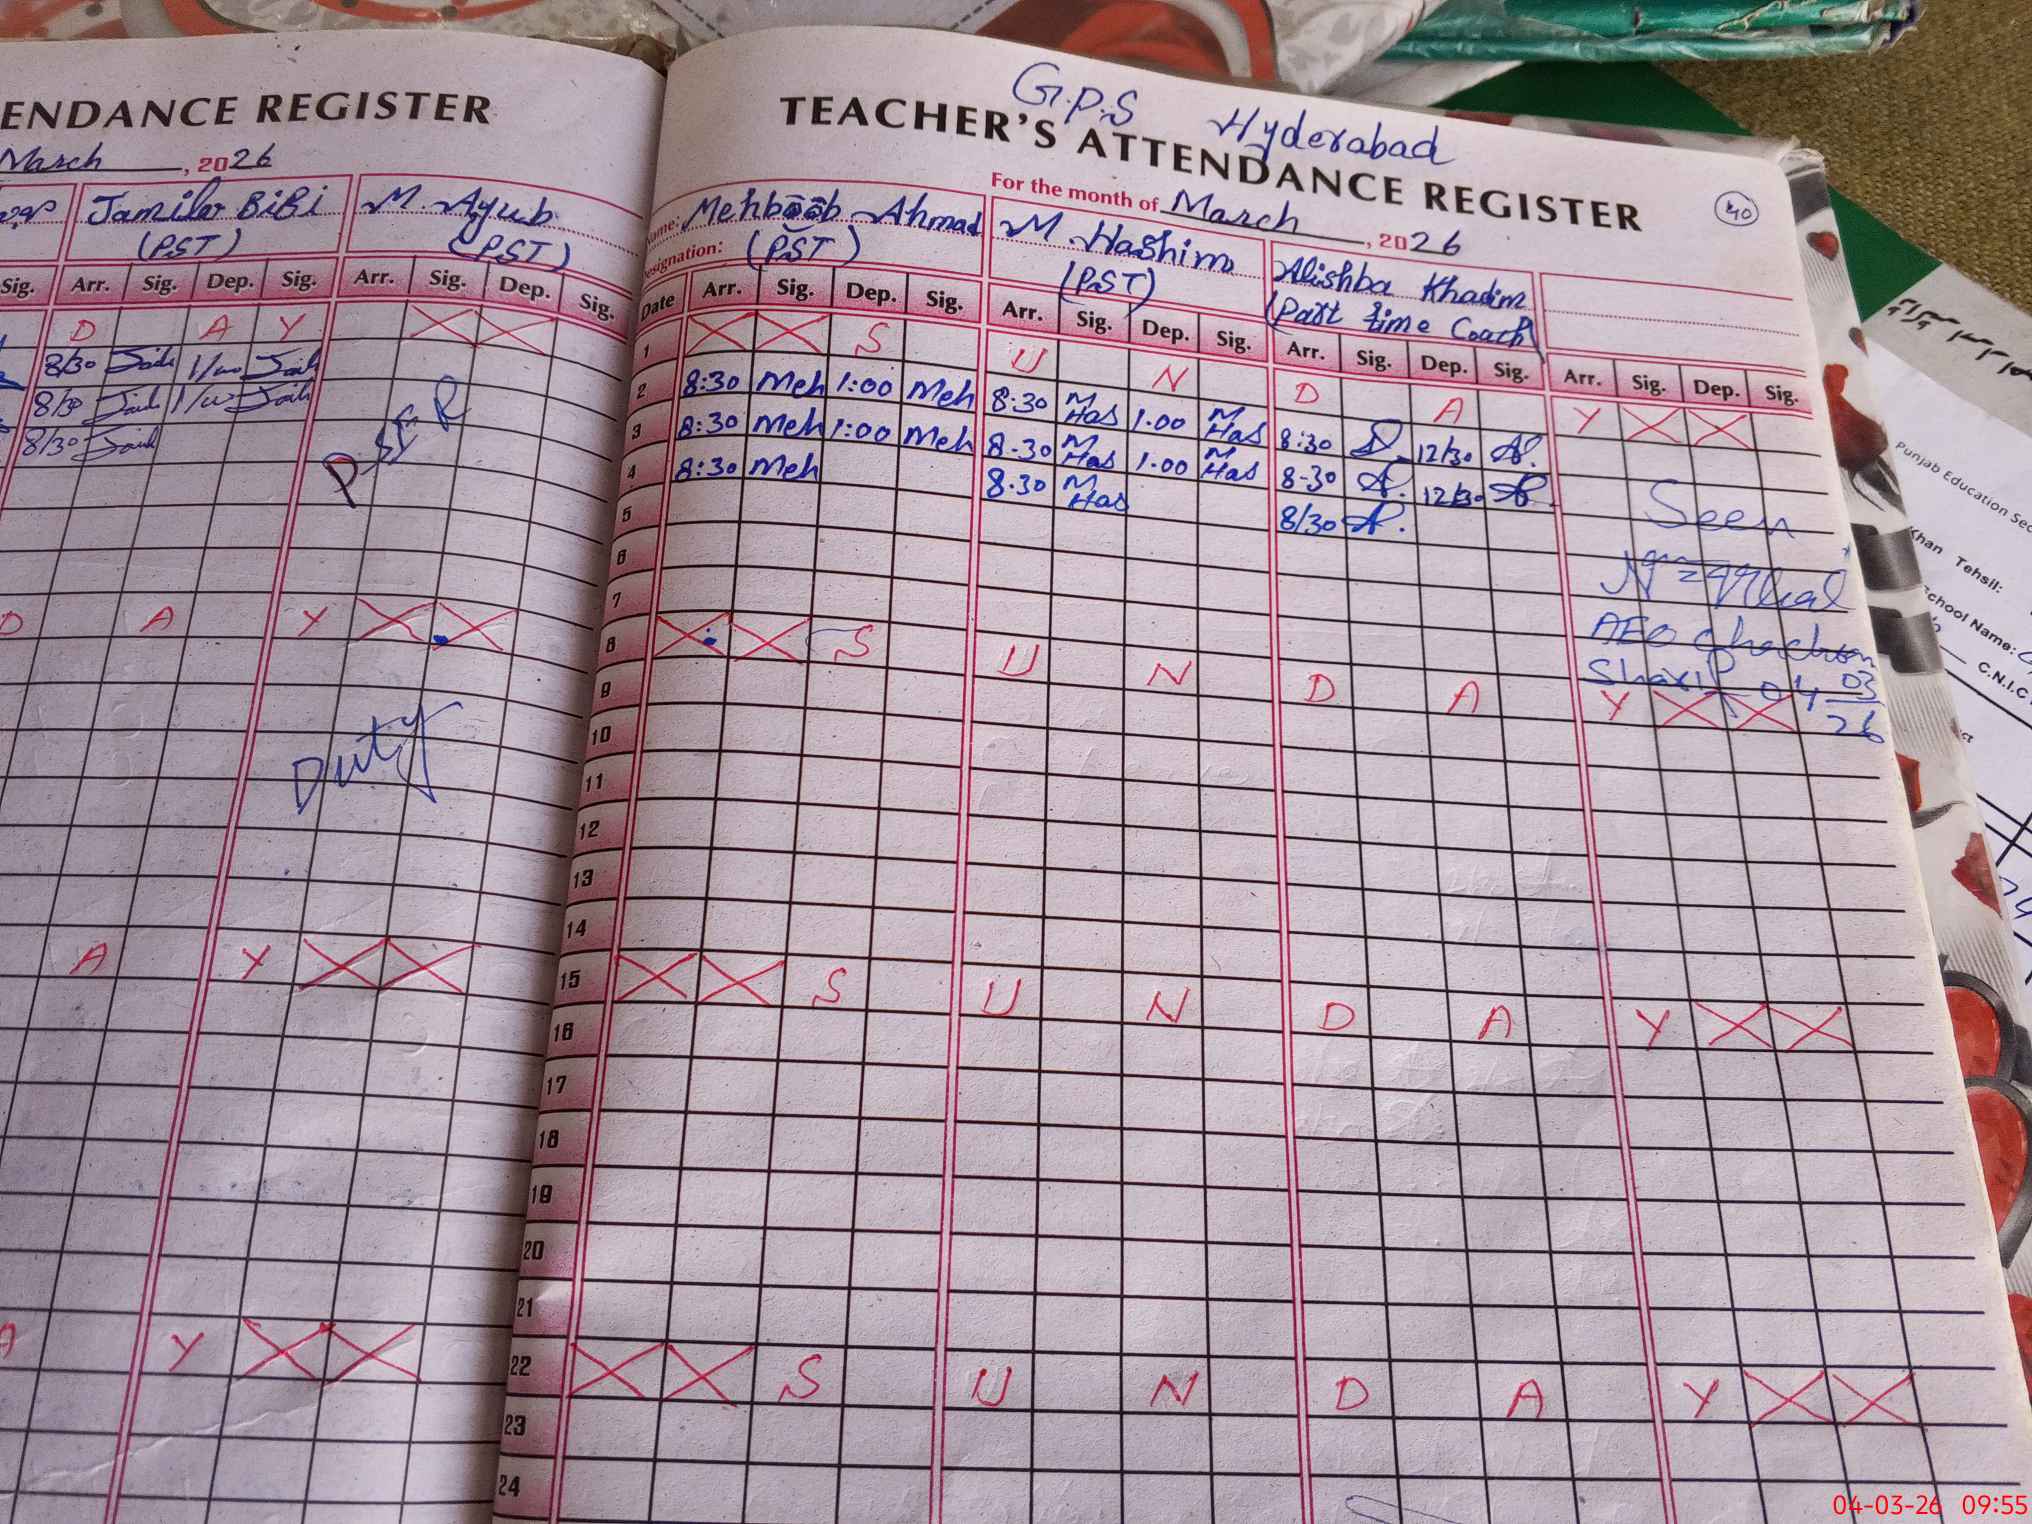 ENDANCE REGISTER
March, 2026
Jamila BiBi
(PST)
M. Ayub
(PST)
Sig. Arr. Sig. Dep. Sig. Arr. Sig. Dep. Sig.
D A Y
8/30 1/00
8/30 1/00
8/30
PSER
D A Y
Duty
A Y
A Y
G.P.S Hyderabad
TEACHER'S ATTENDANCE REGISTER
For the month of March, 2026
40
Name: Mehboob Ahmad
Designation: (PST)
M. Hashim
(PST)
Alishba Khadim
(Part time Coach)
Date Arr. Sig. Dep. Sig. Arr. Sig. Dep. Sig. Arr. Sig. Dep. Sig. Arr. Sig. Dep. Sig.
1 S U N D A Y
2 8:30 Meh 1:00 Meh 8:30 M Has 1.00 M Has 8:30 A. 12/30 A.
3 8:30 Meh 1:00 Meh 8-30 M Has 1.00 M Has 8-30 A. 12/30 A.
4 8:30 Meh 8.30 M Has 8/30 A.
5
6
7
8 S U N D A Y
9
10
11
12
13
14
15 S U N D A Y
16
17
18
19
20
21
22 S U N D A Y
23
24
Seen
AEO
Sharif 04 03 26
Punjab Education Sec
Khan Tehsil:
School Name:
C.N.I.C
04-03-26 09:55